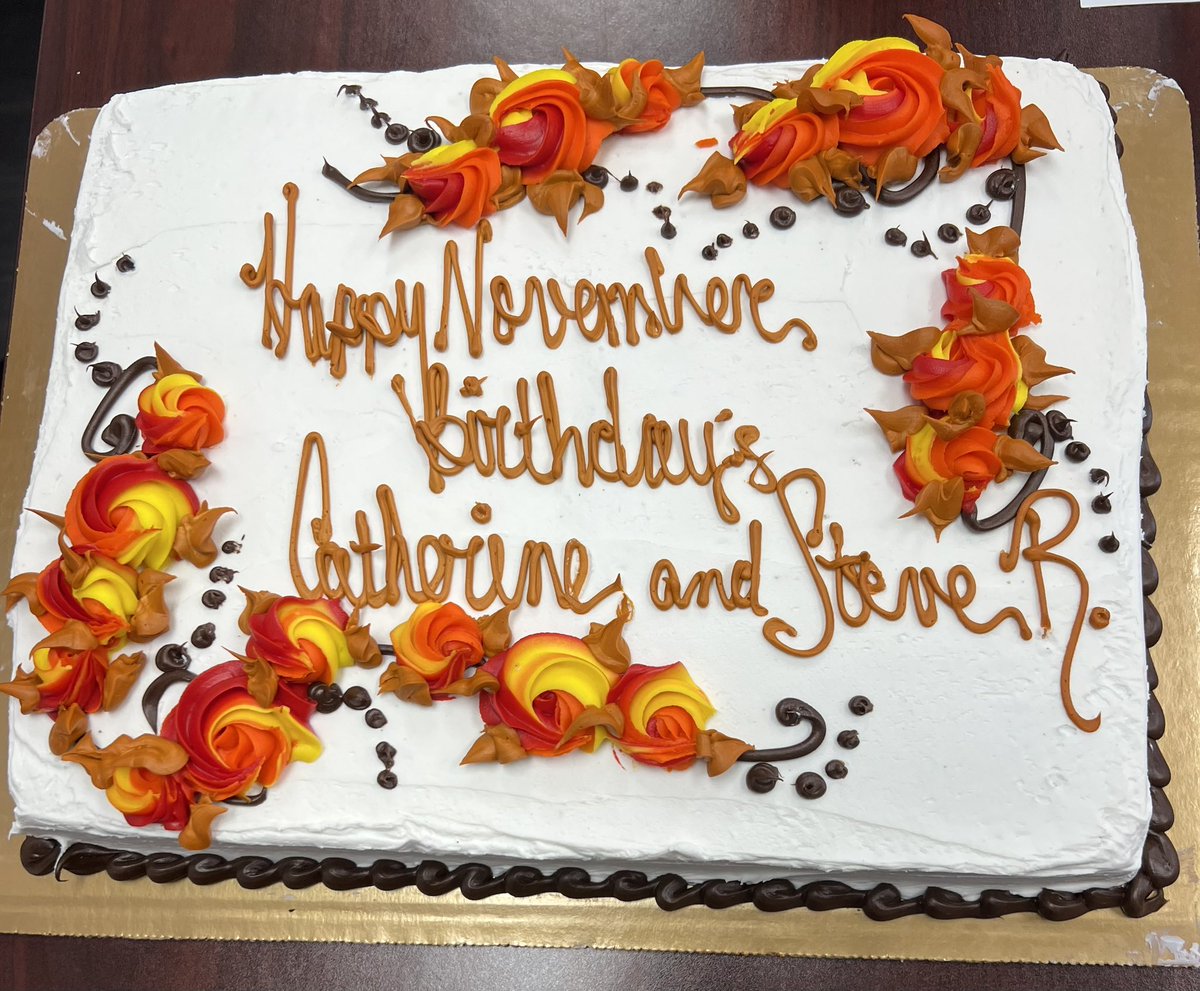 Happy November
birthday's
Catherine, and Steve R.